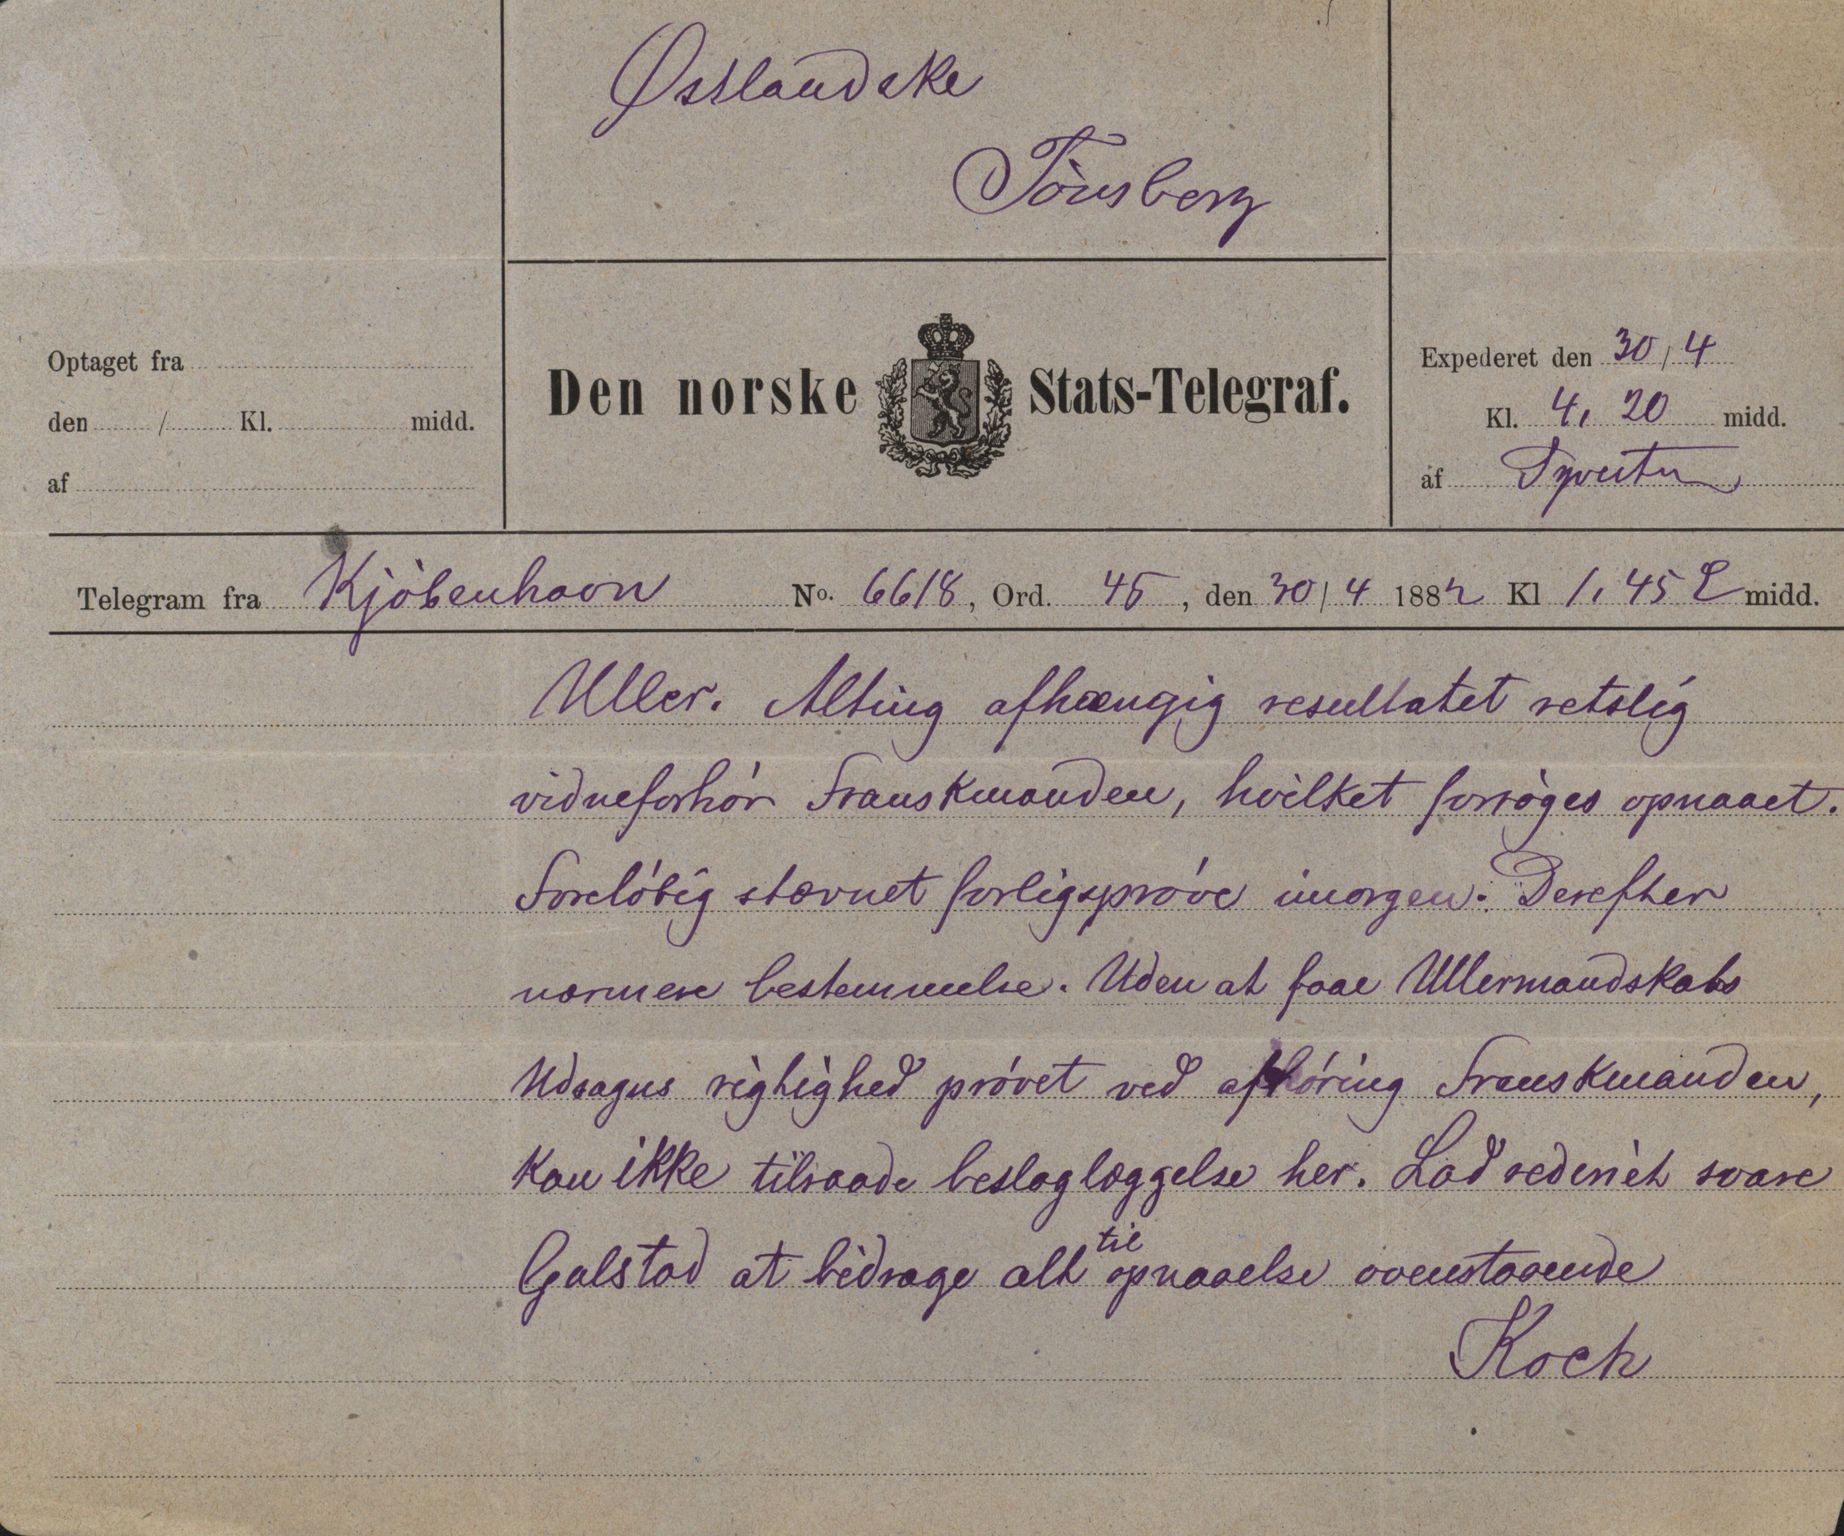 Østlandske
Tönsberg
Optaget fra
den / Kl. midd.
af
Den norske Stats-Telegraf.
Expederet den 30/4
Kl. 4,20 midd.
af
Telegram fra Kjöbenhavn No. 6618, Ord. 45, den 30/4 1882 Kl 1,45 E midd.
Uller. Alting afhængig resultatet retslig
vidneforhör Franskmanden, hvilket forsöges opnaaet.
Forelöbig stævnet forligspröve imorgen. Derefter
nærmere bestemmelse. Uden at faae Ullermandskabs
Udsagns rigtighed prövet ved afhöring Franskmanden,
kan ikke tilraade beslaglæggelse her. Lad rederiet svare
Galstad at bidrage alt til opnaaelse ovenstaaende
Koch